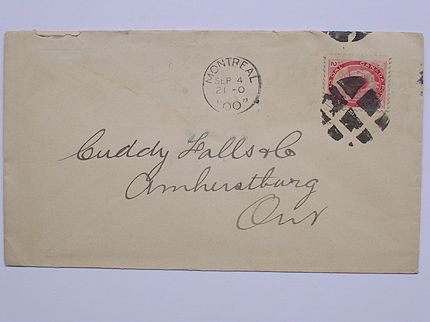 MONTREAL
SEP 4
21-0
"00"
2
CANADA
Cuddy Falls & Co
Amherstburg
Ont